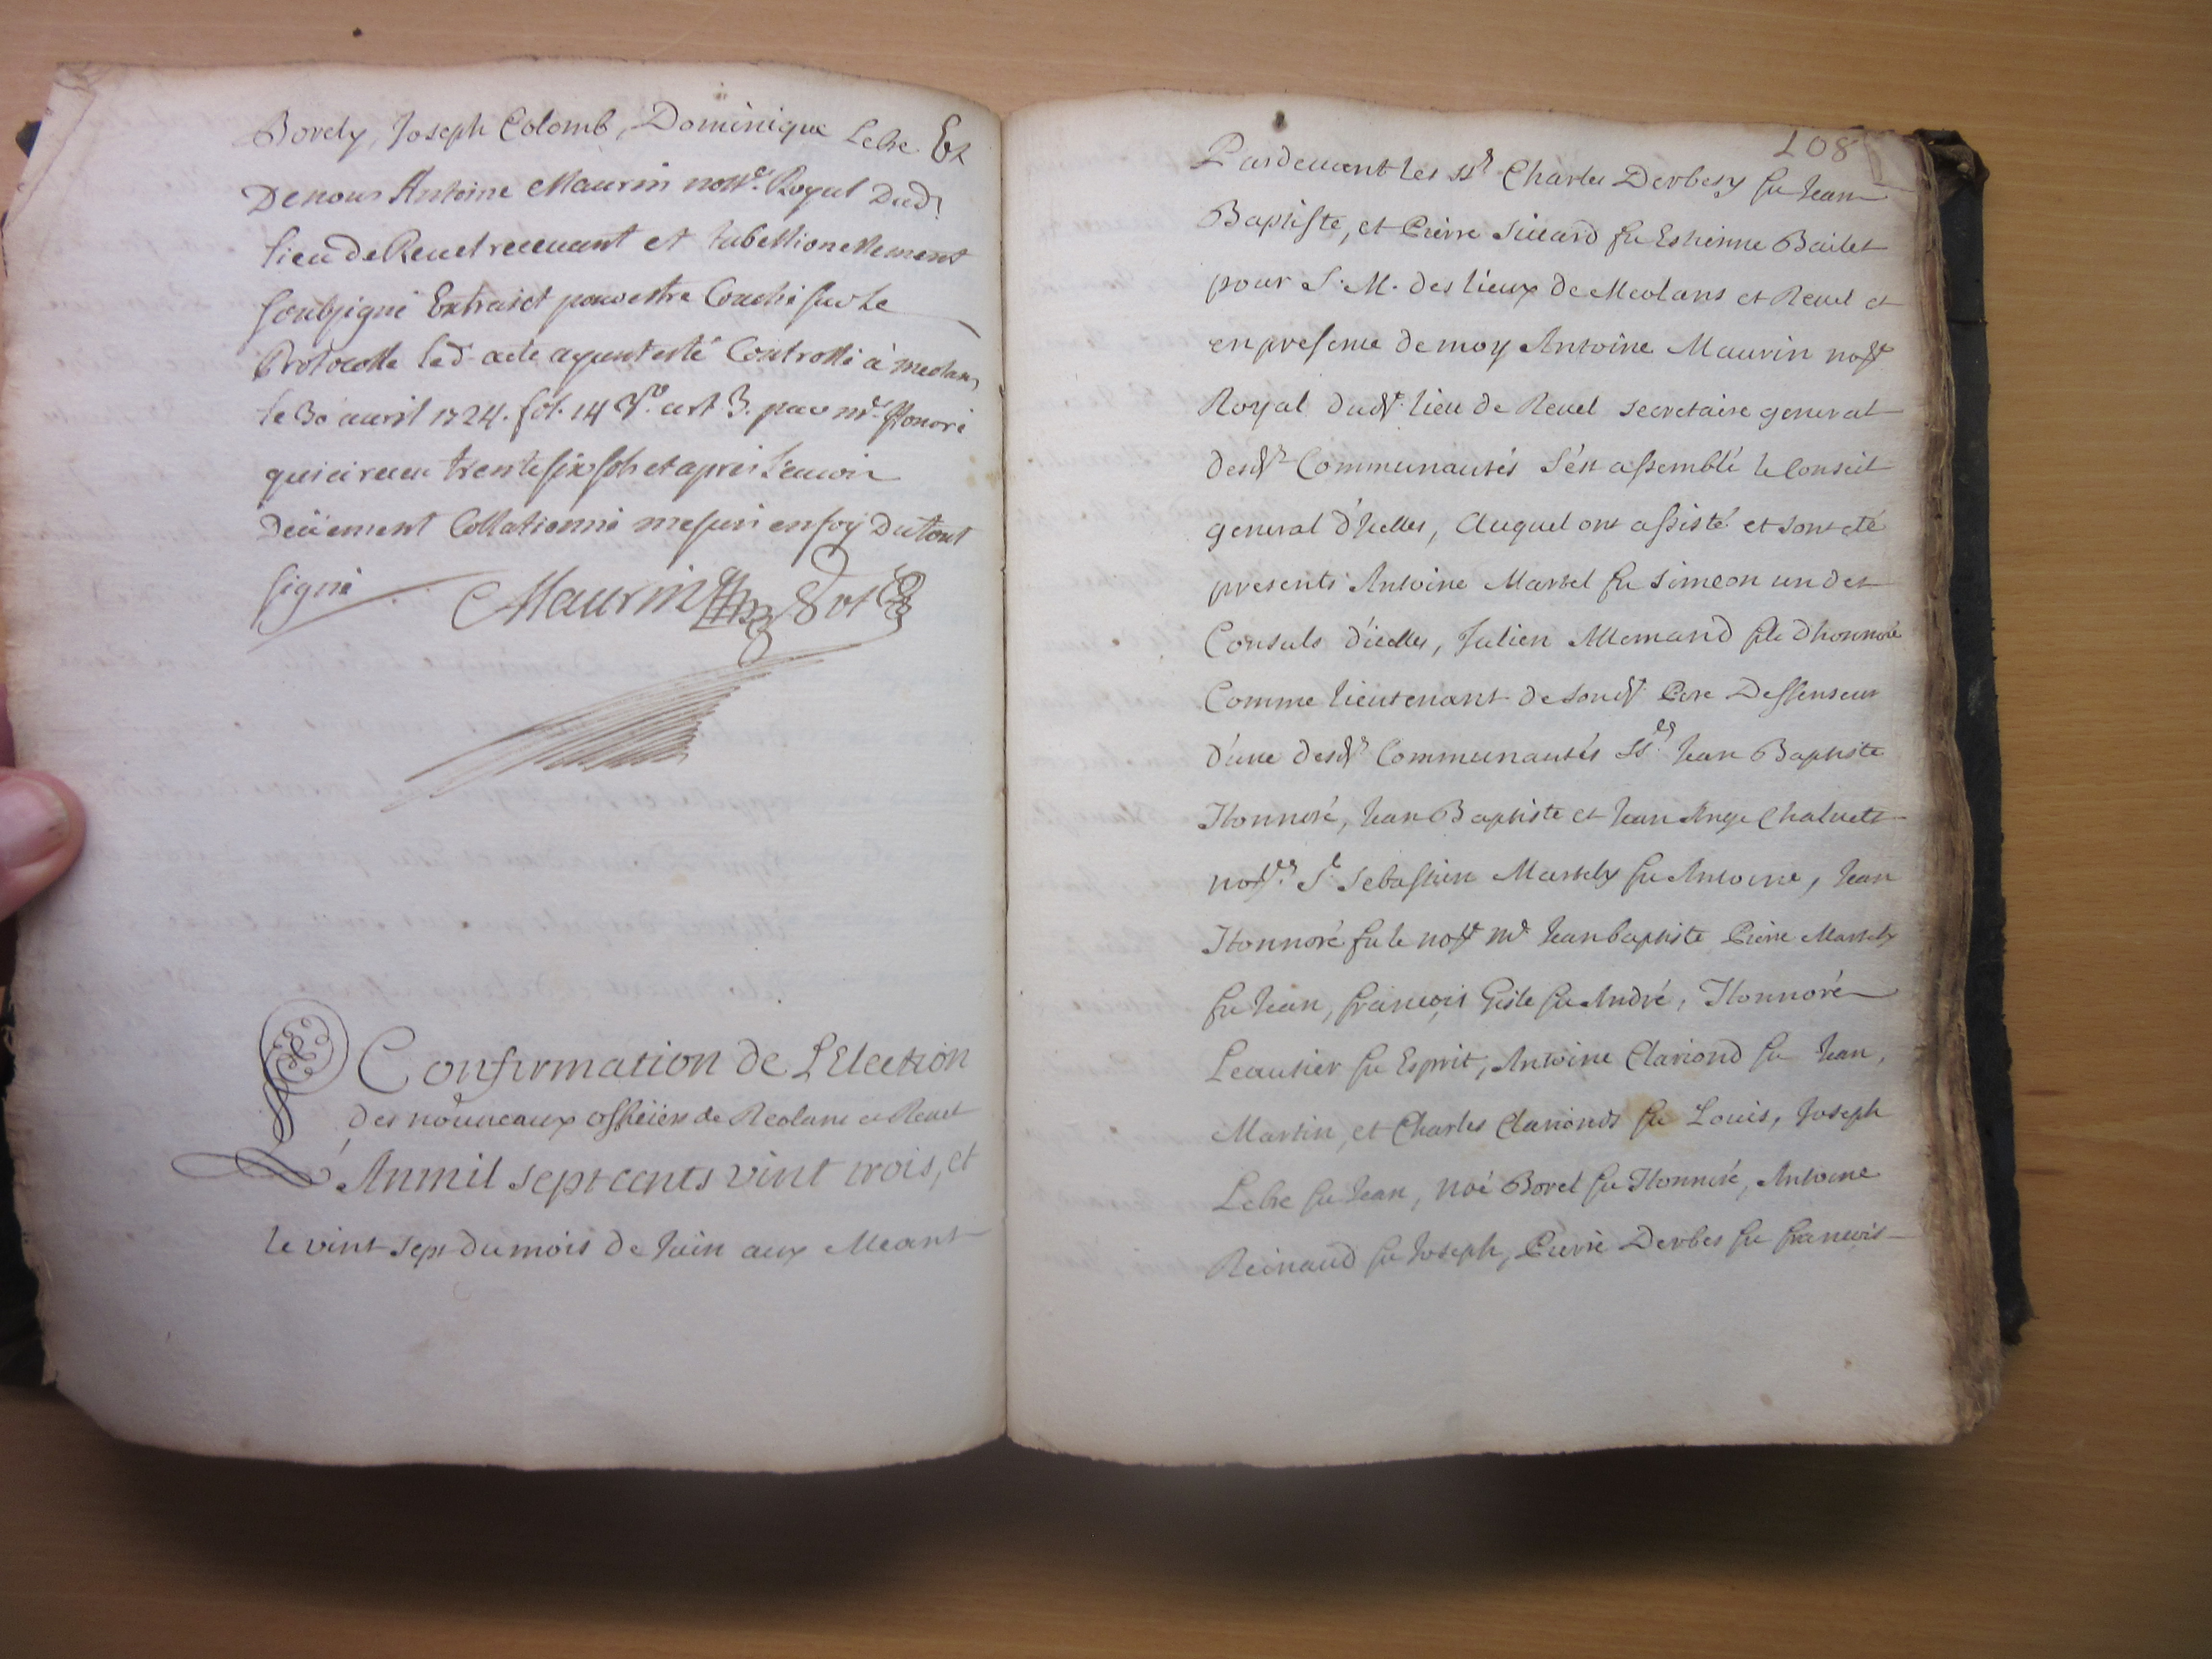 Borely, Joseph Colomb, Dominique Lebre Et
De nous Antoine Maurin nott.e Royal Dud.
lieu de Reuel receuant et tabellionellement
soubsigné Extraict pour estre Couché sur le
Protocolle led. acte ayant esté Controllé à meolans
le 30 auril 1724. fol. 14 V.o art 3. par m.r Honoré
qui a receu trente six sols et apres l'auoir
deüement Collationné me suis en foy du tout
signé Maurin Not.e
Confirmation de L'Election
des nouueaux officiers de Meolans et Reuel
L'An mil sept cents vint trois, et
le vint sept du mois de Juin aux Means
108
Pardeuant les ss.rs Charles Derbesy fu Jean
Baptiste, et Pierre Siccard fu Estienne Bailes
pour S. M. des lieux de Meolans et Reuel et
en presence de moy Antoine Maurin not.e
Royal dud.t lieu de Reuel secretaire general
desd.s Communautés s'est assemblé le Conseil
general d'Icelles, Auquel ont assisté et sont eté
presents Antoine Martel fu Simeon un des
Consuls d'icelles, Julien Allemand fils d'honnoré
Comme lieutenant de soud.t Pere Deffenseur
d'une desd.s Communautés Ss.rs Jean Baptiste
Honnoré, Jean Baptiste et Jean Ange Chaluets
not.res S.r Sebastien Martely fu Antoine, Jean
Honnoré fu le not.e m.e Jean baptiste Pierre Martely
fu Jean, françois Gisle fu André, Honnoré
Leautier fu Esprit, Antoine Clariond fu Jean,
Martin, et Charles Clarionds fu Louis, Joseph
Lebre fu Jean, Noé Borel fu Honnoré, Antoine
Reinaud fu Joseph, Pierre Derbes fu françois